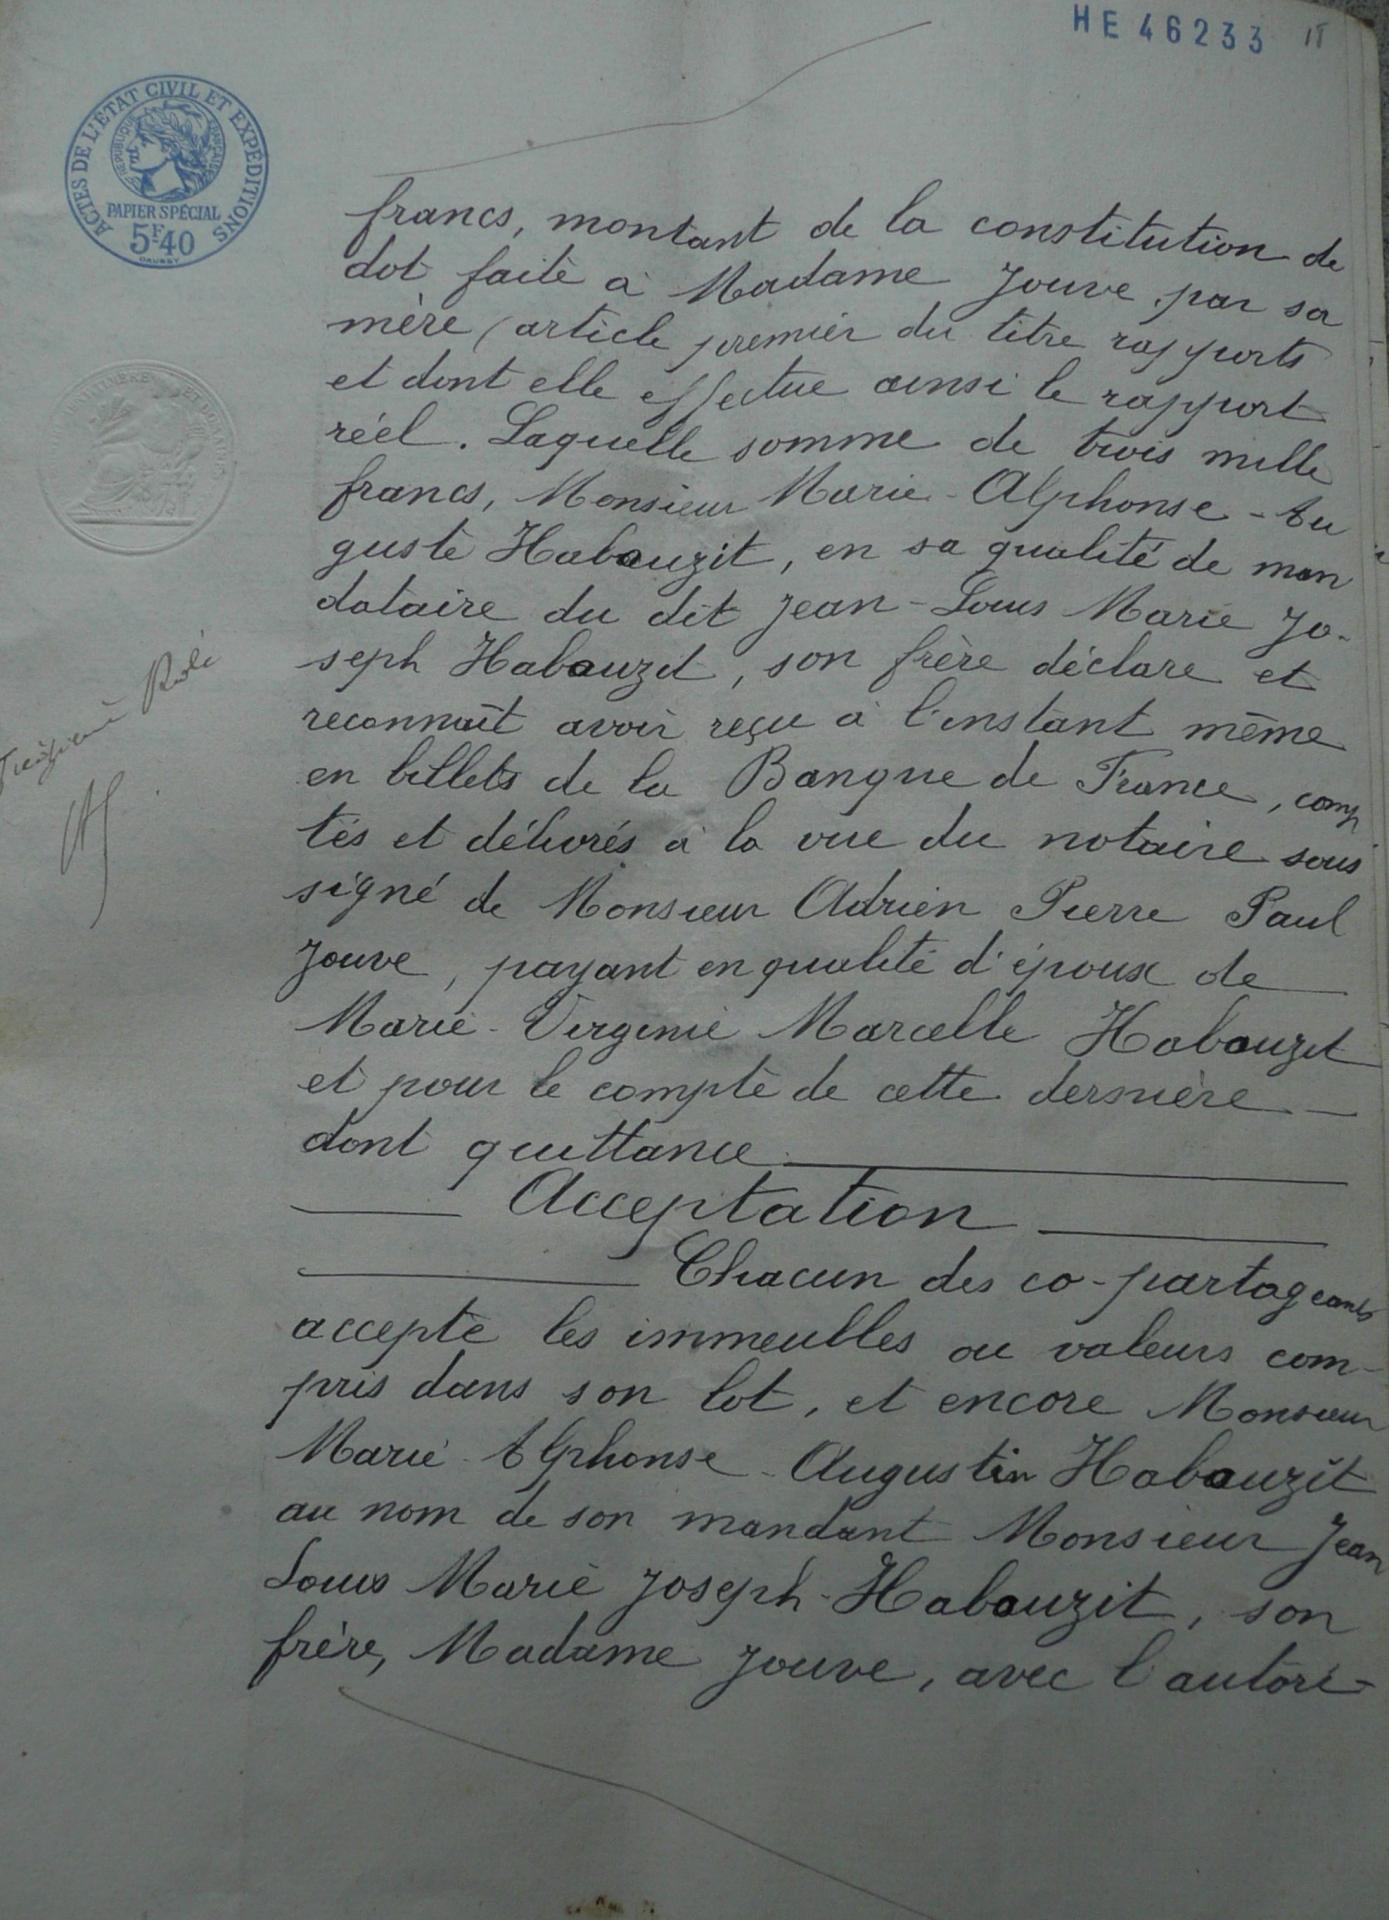 HE 46233
ACTES DE L'ETAT CIVIL ET EXPEDITIONS
REPUBLIQUE FRANÇAISE
PAPIER SPÉCIAL
5F40
DAUSSY
francs, montant de la constitution de
dot faite à Madame Jouve par sa
mère (article premier du titre rapports
et dont elle effectue ainsi le rapport
réel. Laquelle somme de trois mille
francs, Monsieur Marie-Alphonse-Au
guste Habauzit, en sa qualité de man
dataire du dit Jean-Louis Marie Jo-
seph Habauzit, son frère déclare et
reconnaît avoir reçu à l'instant même
en billets de la Banque de France, comp
tés et délivrés à la vue du notaire sous
signé de Monsieur Adrien Pierre Paul
Jouve, payant en qualité d'époux de
Marie-Virginie Marcelle Habauzit
et pour le compte de cette dernière
dont quittance
Acceptation
Chacun des co-partageants
accepte les immeubles ou valeurs com-
pris dans son lot, et encore Monsieur
Marie-Alphonse-Augustin Habauzit
au nom de son mandant Monsieur Jean
Louis Marie Joseph-Habauzit, son
frère, Madame Jouve, avec l'autori-